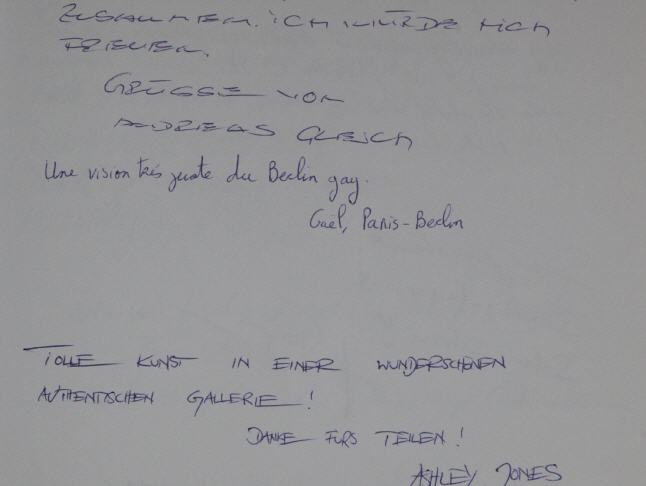 ZUSAMMEN. ICH WÜRDE MICH
FREUEN.
GRÜSSE VON
ANDREAS GLEICH
Une vision très juste du Berlin gay.
Gaël, Paris-Berlin
TOLLE KUNST IN EINER WUNDERSCHENEN
AUTHENTISCHEN GALLERIE!
DANKE FÜRS TEILEN!
ASHLEY JONES